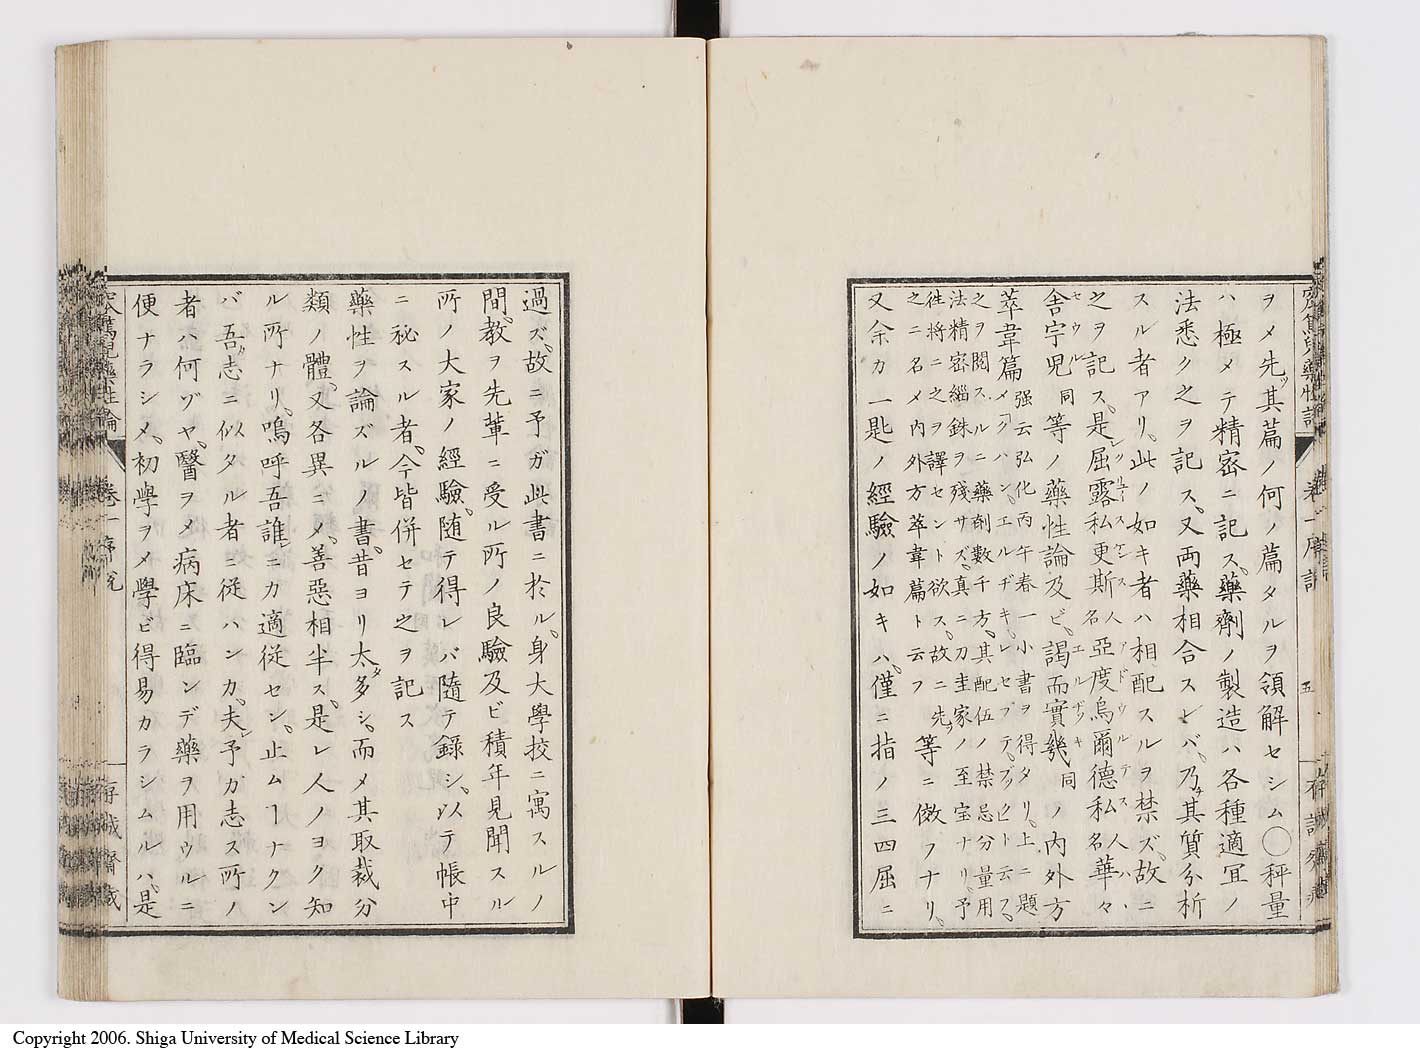 ヲメ先ヅ其篇ノ何ノ篇タルヲ領解セシム〇秤量
ハ極メテ精密ニ記ス、藥劑ノ製造ハ各種適宜ノ
法悉ク之ヲ記ス、又両藥相合スレバ、乃チ其質分析
スル者アリ、此ノ如キ者ハ相配スルヲ禁ズ、故ニ
之ヲ記ス、是レ屈露私更斯人名亞度烏爾德私人名華々
舍宇児同等ノ藥性論及ビ、謁而實幾同ノ内外方
萃韋篇强云弘化丙午春一小書ヲ得タリ、上ニ題
メコクハン、エルヂキ、レセプテ、ブックト云フ、
之ヲ閲スルニ、藥劑數千方、其配伍ノ禁忌分量用
法精密緇銖ヲ殘サズ、真ニ刀圭家ノ至宝ナリ、予
徃將ニ之ヲ譯セント欲ス、故ニ先ヅ
之ニ名メ内外方萃韋篇ト云フ等ニ倣フナリ、
又余カ一匙ノ經驗ノ如キハ、僅ニ指ノ三四屈ニ
五
過ズ、故ニ予ガ此書ニ於ル、身大學校ニ寓スルノ
間、教ヲ先輩ニ受ル所ノ良驗及ビ積年見聞スル
所ノ大家ノ經驗、随テ得レバ隨テ録シ、以テ帳中
ニ祕スル者、今皆併セテ之ヲ記ス
藥性ヲ論ズルノ書、昔ヨリ太ダ多シ、而メ其取裁分
類ノ體、又各異ニメ、善惡相半ス、是レ人ノヨク知
ル所ナリ、嗚呼吾誰ニカ適従セン、止ムヿナクン
バ吾ガ志ニ似タル者ニ従ハンカ、夫レ予ガ志ス所ノ
者ハ何ゾヤ、醫ヲメ病床ニ臨ンデ藥ヲ用ウルニ
便ナラシメ、初學ヲメ學ビ得易カラシムルハ、是
卷一序説
存誠齋蔵
Copyright 2006. Shiga University of Medical Science Library